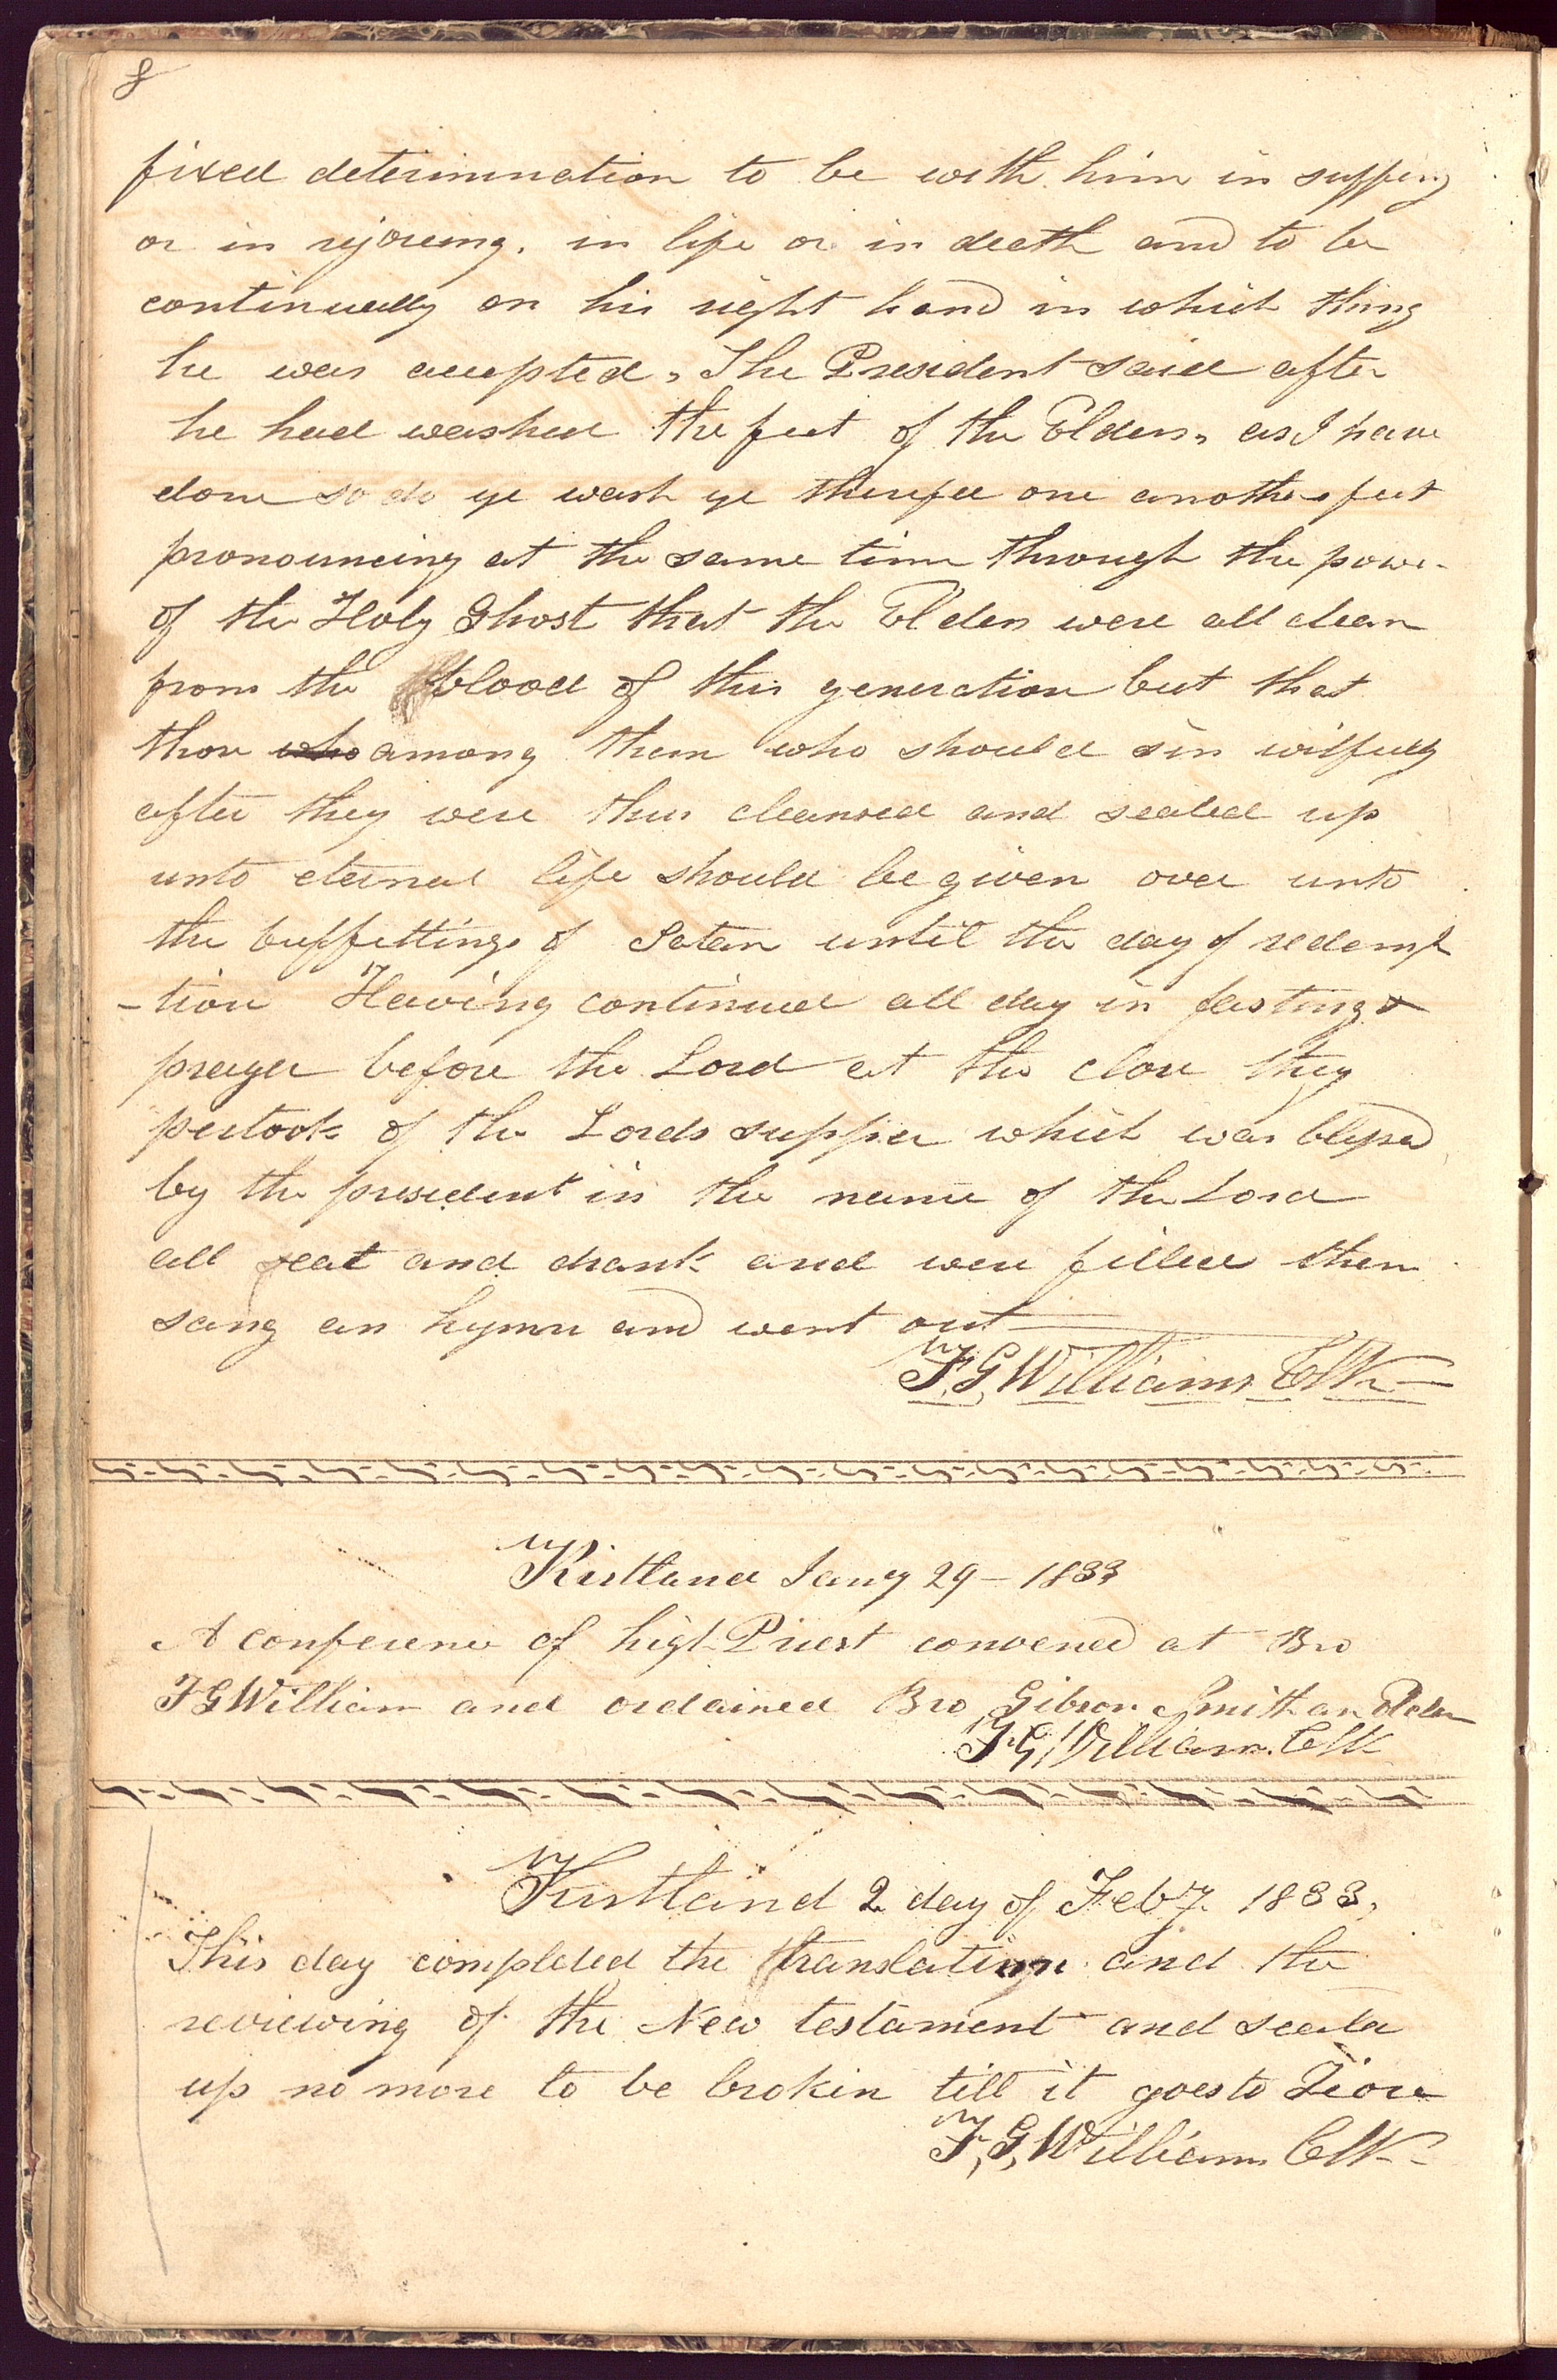 8
fixed determination to be with him in suffering
or in rejoicing, in life or in death and to be
continually on his right hand in which thing
he was accepted, The President said after
he had washed the feet of the Elders, as I have
done so do ye wash ye therefore one anothers feet
pronouncing at the same time through the power
of the Holy Ghost that the Elders were all clean
from the blood of this generation but that
those who among them who should sin wilfully
after they were thus cleansed and sealed up
unto eternal life should be given over unto
the buffettings of Satan until the day of redemp
-tion Having continued all day in fasting &
prayer before the Lord at the close they
partook of the Lords supper which was blessed
by the president in the name of the Lord
all eat and drank and were filled then
sang an hymn and went out
F. G. Williams Clk
Kirtland Jany 29 – 1833
A conference of high Priest convened at Bro
F G William and ordained Bro Gibson Smith an Elder
F. G. Williams Clk
Kirtland 2 day of Feby. 1833,
This day completed the translation and the
reviewing of the New testament and sealed
up no more to be brokin till it goes to Zion
F, G, Williams Clk